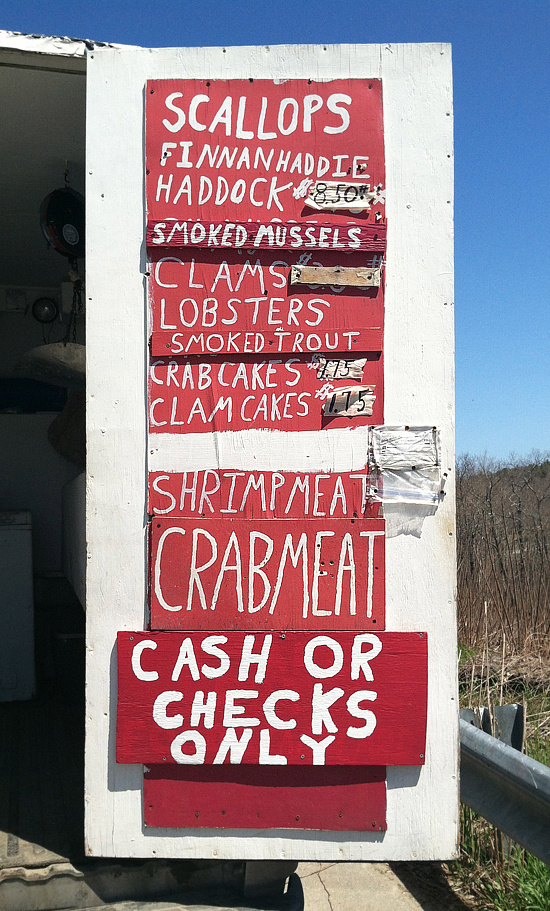 SCALLOPS
FINNANHADDIE
HADDOCK $8.50#
SMOKED MUSSELS
CLAMS
LOBSTERS
SMOKED TROUT
CRABCAKES $1.75
CLAM CAKES $1.75
SHRIMPMEAT
CRABMEAT
CASH OR
CHECKS
ONLY